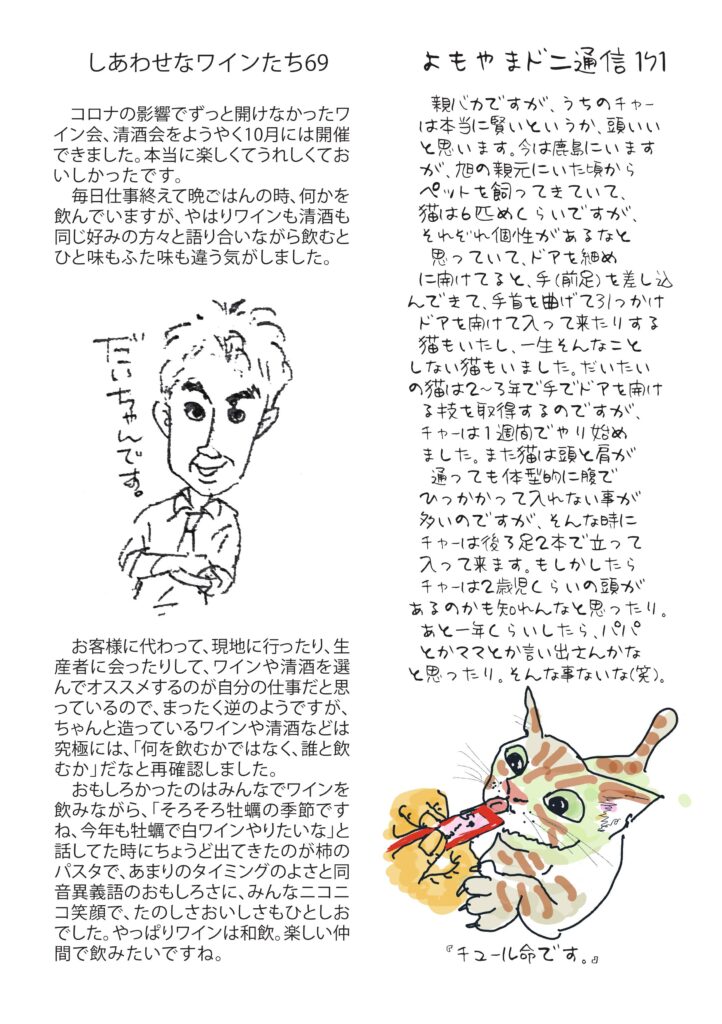 しあわせなワインたち69
コロナの影響でずっと開けなかったワ
イン会、清酒会をようやく10月には開催
できました。本当に楽しくてうれしくてお
いしかったです。
毎日仕事終えて晩ごはんの時、何かを
飲んでいますが、やはりワインも清酒も
同じ好みの方々と語り合いながら飲むと
ひと味もふた味も違う気がしました。
だいちゃんです。
お客様に代わって、現地に行ったり、生
産者に会ったりして、ワインや清酒を選
んでオススメするのが自分の仕事だと思
っているので、まったく逆のようですが、
ちゃんと造っているワインや清酒などは
究極には、「何を飲むかではなく、誰と飲
むか」だなと再確認しました。
おもしろかったのはみんなでワインを
飲みながら、「そろそろ牡蠣の季節です
ね、今年も牡蠣で白ワインやりたいな」と
話してた時にちょうど出てきたのが柿の
パスタで、あまりのタイミングのよさと同
音異義語のおもしろさに、みんなニコニ
コ笑顔で、たのしさおいしさもひとしお
でした。やっぱりワインは和飲。楽しい仲
間で飲みたいですね。
よもやまドニ通信171
親バカですが、うちのチャー
は本当に賢いというか、頭いい
と思います。今は鹿島にいます
が、旭の親元にいた頃から
ペットを飼ってきていて、
猫は6匹めくらいですが、
それぞれ個性があるなと
思っていて、ドアを細め
に開けてると、手(前足)を差し込
んできて、手首を曲げて引っかけ
ドアを開けて入って来たりする
猫もいたし、一生そんなこと
しない猫もいました。だいたい
の猫は2〜3年で手でドアを開け
る技を取得するのですが、
チャーは1週間でやり始め
ました。また猫は頭と肩が
通っても体型的に腹で
ひっかかって入れない事が
多いのですが、そんな時に
チャーは後ろ足2本で立って
入って来ます。もしかしたら
チャーは2歳児くらいの頭が
あるのかも知れんなと思ったり。
あと一年くらいしたら、パパ
とかママとか言い出さんかな
と思ったり。そんな事ないな(笑)。
『チュール命です。』